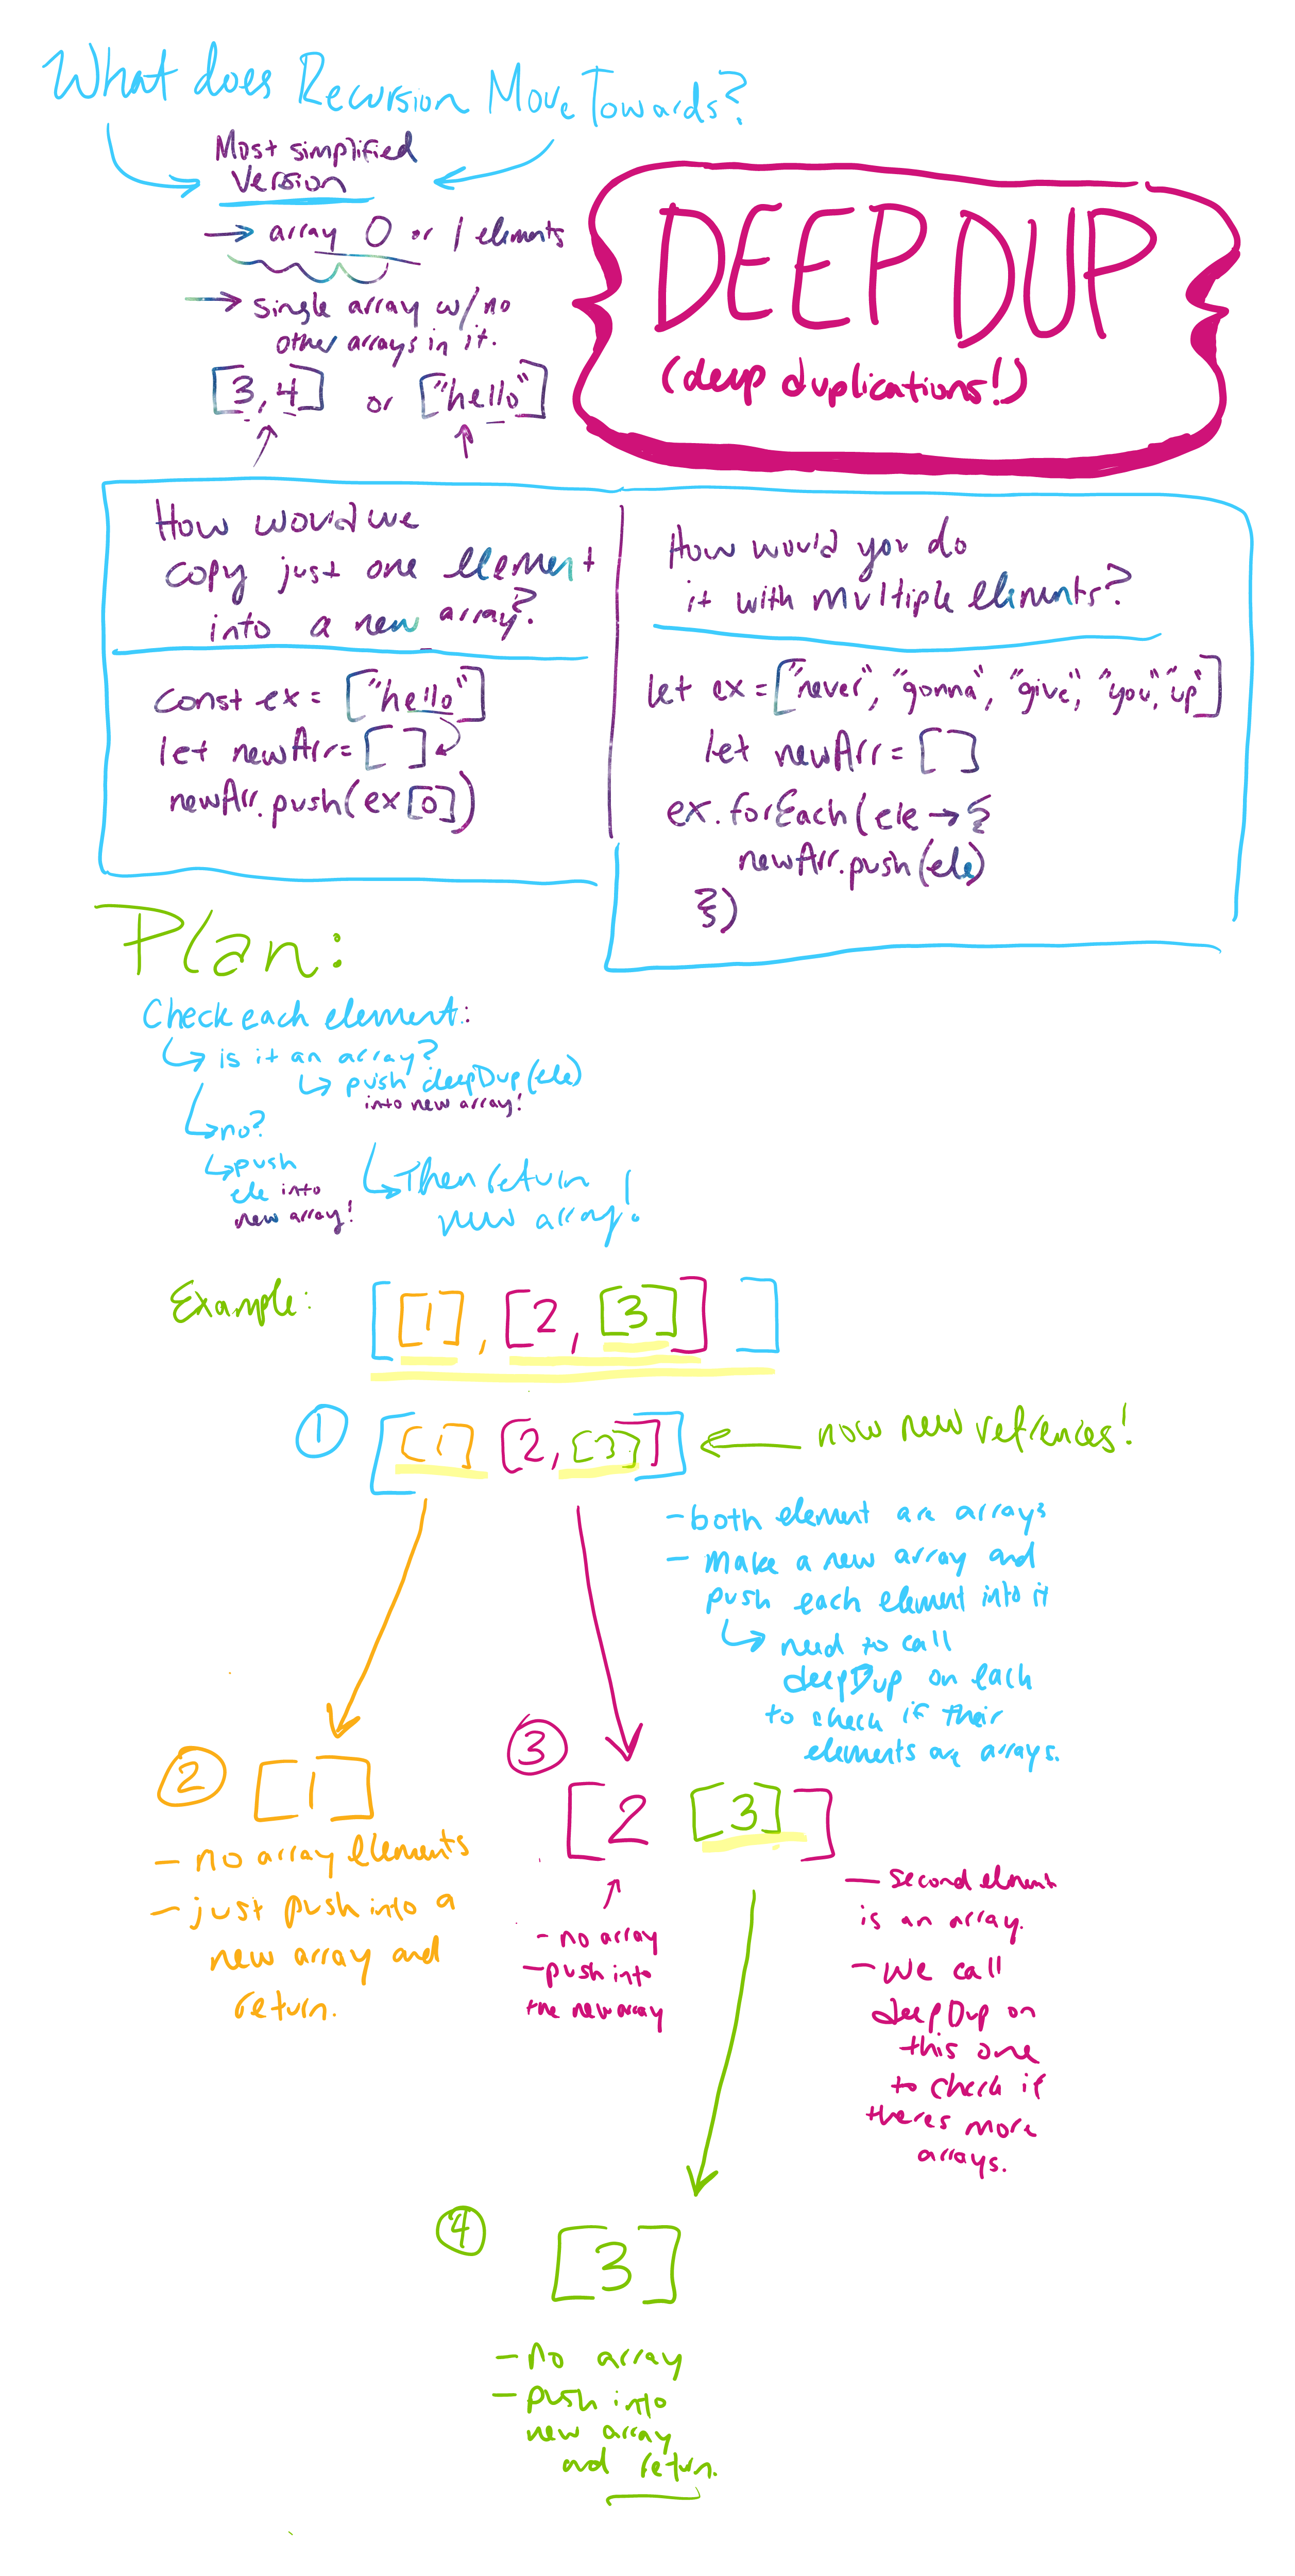 What does Recursion Move Towards?
Most simplified
Version
→ array 0 or 1 elements
→ single array w/no
other arrays in it.
[3,4] or ["hello"]
DEEP DUP
(deep duplications!)
How would we
copy just one element
into a new array?
const ex = ["hello"]
let newArr = []
newArr.push(ex[0])
How would you do
it with multiple elements?
let ex = ["never", "gonna", "give", "you", "up"]
let newArr = []
ex.forEach(ele → {
newArr.push(ele)
})
Plan:
Check each element:
↳ is it an array?
↳ push deepDup(ele)
into new array!
↳ no?
↳ push
ele into
new array!
↳ Then return
new array!
Example: [[1], [2, [3]] ]
① [[1] [2, [3]]] ← now new refrences!
- both element are arrays
- make a new array and
push each element into it
↳ need to call
deepDup on each
to check if their
elements are arrays.
② [1]
- no array elements
- just push into a
new array and
return.
③
[2 [3] ]
- no array
- push into
the new array
- second element
is an array.
- we call
deepDup on
this one
to check if
theres more
arrays.
④ [3]
- no array
- push into
new array
and return.